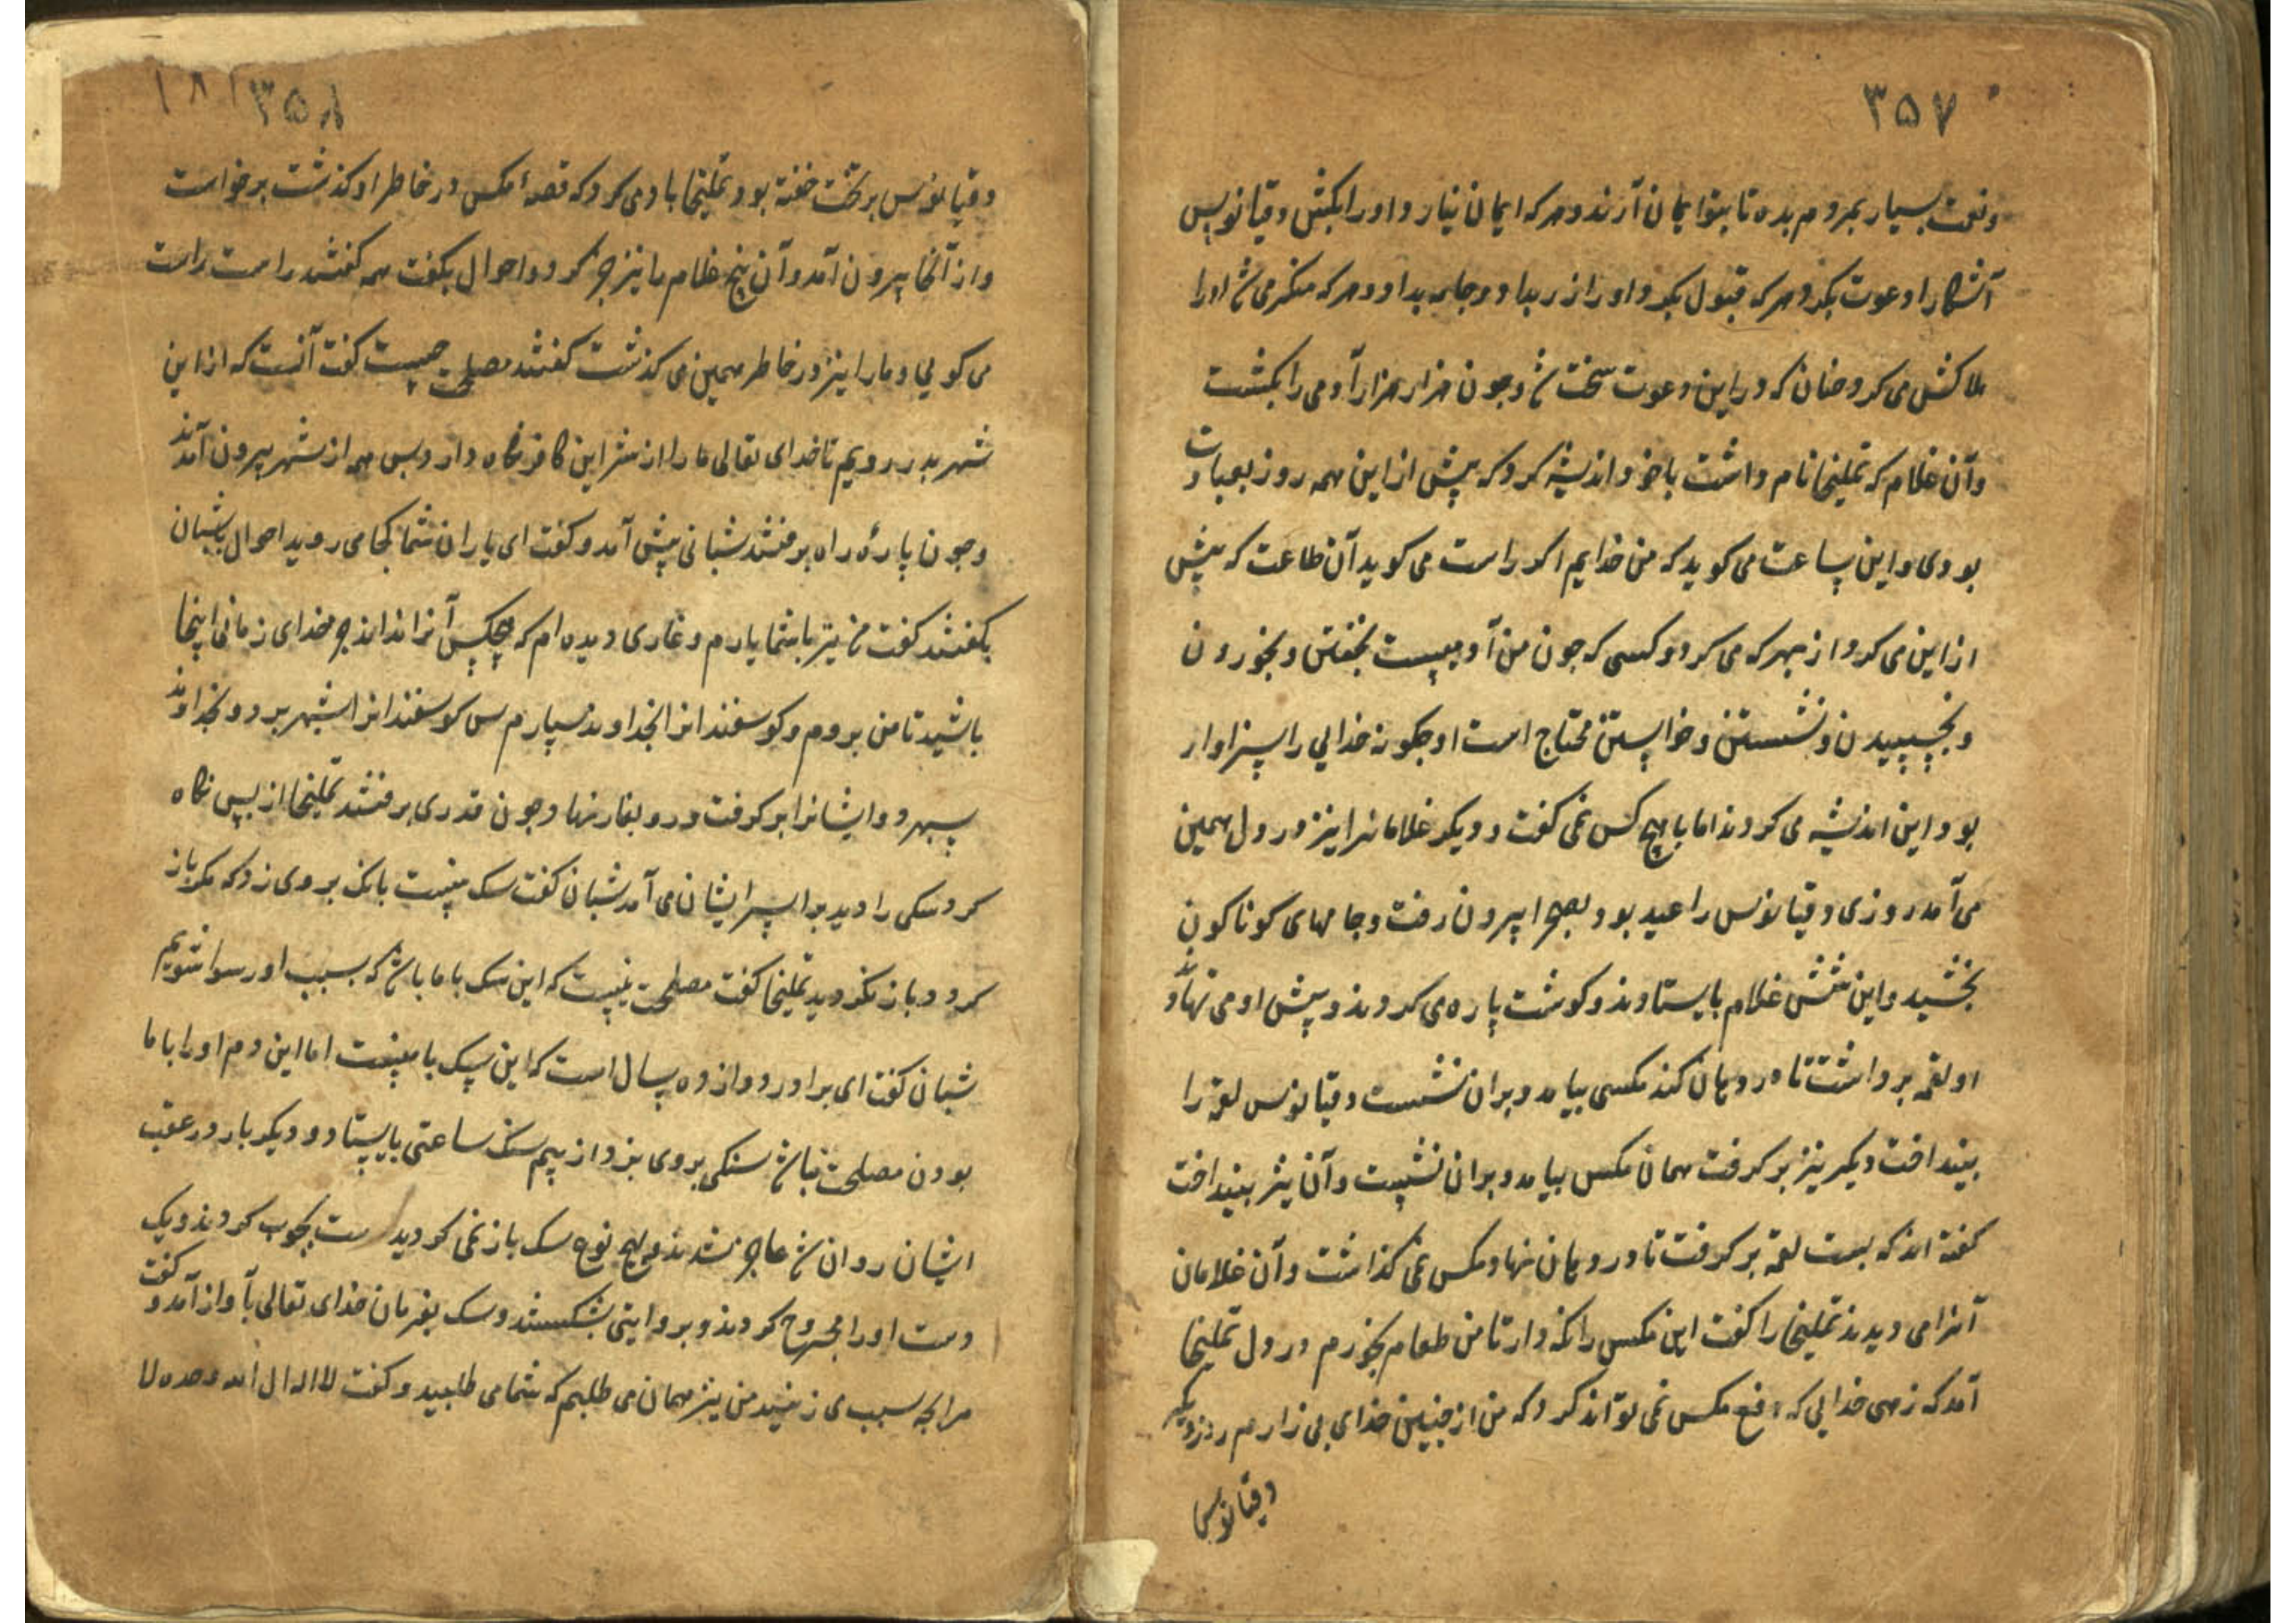 ۳۵۷
ونعمت بسیار بمردم بده تا بتو ایمان آرند و هر که ایمان نیارد او را بکش دقیانوس
آشکارا دعوت بکرد و هر که قبول بکرد او را زر بداد و جامه بداد و هر که منکر می شد او را
هلاکش می کرد چنان که در این دعوت سخت شد و چون هزار هزار آدمی را بکشت
وآن غلام که تملیخا نام داشت با خود اندیشه کرد که پیش از این همه روز بعبادت
بودی و این ساعت می کوید که من خدایم اکر راست می کوید آن طاعت که پیش
از این می کرد از بهر که می کرد و کسی که چون من آدمیست بخفتن و بخوردن
و بخسپیدن و نشستن و خواستن محتاج است او چکونه خدایی را سزاوار
بود این اندیشه می کردند اما با هیچ کس نمی کفت و دیکر غلامانرا نیز در دل همین
می آمد روزی دقیانوس را عید بود بصحرا بیرون رفت و جامهای کوناکون
بخشید و این شش غلام بایستادند و کوشت پاره می کردند و پیش او می نهادند
او لقمه برداشت تا در دهان کند مکسی بیامد و بران نشست دقیانوس لقمه را
بینداخت دیکر نیز برکرفت همان مکس بیامد و بران نشست و آن نیز بینداخت
کفته اند که بیست لقمه برکرفت تا در دهان نهاد مکس نمی کذاشت و آن غلامان
آنرا می دیدند تملیخا را کفت این مکس را نکه دار تا من طعام بخورم در دل تملیخا
آمد که زهی خدایی که دفع مکس نمی تواند کرد که من از چنین خدای بی زارم روز دیکر
دقیانوس
۳۵۸ ۱۸۱
دقیانوس بر تخت خفته بود تملیخا باد می کرد که قصهٔ مکس در خاطر او کذشت برخواست
و از آنجا بیرون آمد و آن پنج غلام را نیز خبر کرد و احوال بکفت همه کفتند راست راست
می کویی و ما را نیز در خاطر همین می کذشت کفتند مصلحت چیست کفت آنست که از این
شهر بدر رویم تا خدای تعالی ما را از شر این کافر نکاه دارد پس همه از شهر بیرون آمدند
و چون پارهٔ راه برفتند شبانی پیش آمد و کفت ای یاران شما کجا می روید احوال بشبان
بکفتند کفت من نیز با شما یارم و غاری دیده ام که هیچکس آنرا نداند جز خدای زمانی اینجا
باشید تا من بروم و کوسفندانرا بخداوند سپارم پس کوسفندانرا بشهر برد و بخداوند
سپرد و ایشانرا برکرفت و رو بغار نهاد چون قدری برفتند تملیخا از پس نکاه
کرد سکی را دید برابر ایشان می آمد شبان کفت سک منست بانک بر وی زد که مکر باز
کردد باز نکردید تملیخا کفت مصلحت نیست که این سک با ما باشد که بسبب او رسوا شویم
شبان کفت ای برادر دوازده سال است که این سک با منست اما این دم او را با ما
بودن مصلحت نباشد سنکی بر وی بزد از بیم سنک ساعتی بایستاد و دیکر بار در عقب
ایشان روان شد عاجز شدند بهیچ نوع سک باز نمی کردید دست بچوب کردند و یک
دست او را مجروح کردند و بروایتی بشکستند و سک بفرمان خدای تعالی بآواز آمد و کفت
مرا بچه سبب می زنید من نیز همان می طلبم که شما می طلبید و کفت لا اله الا الله وحده لا